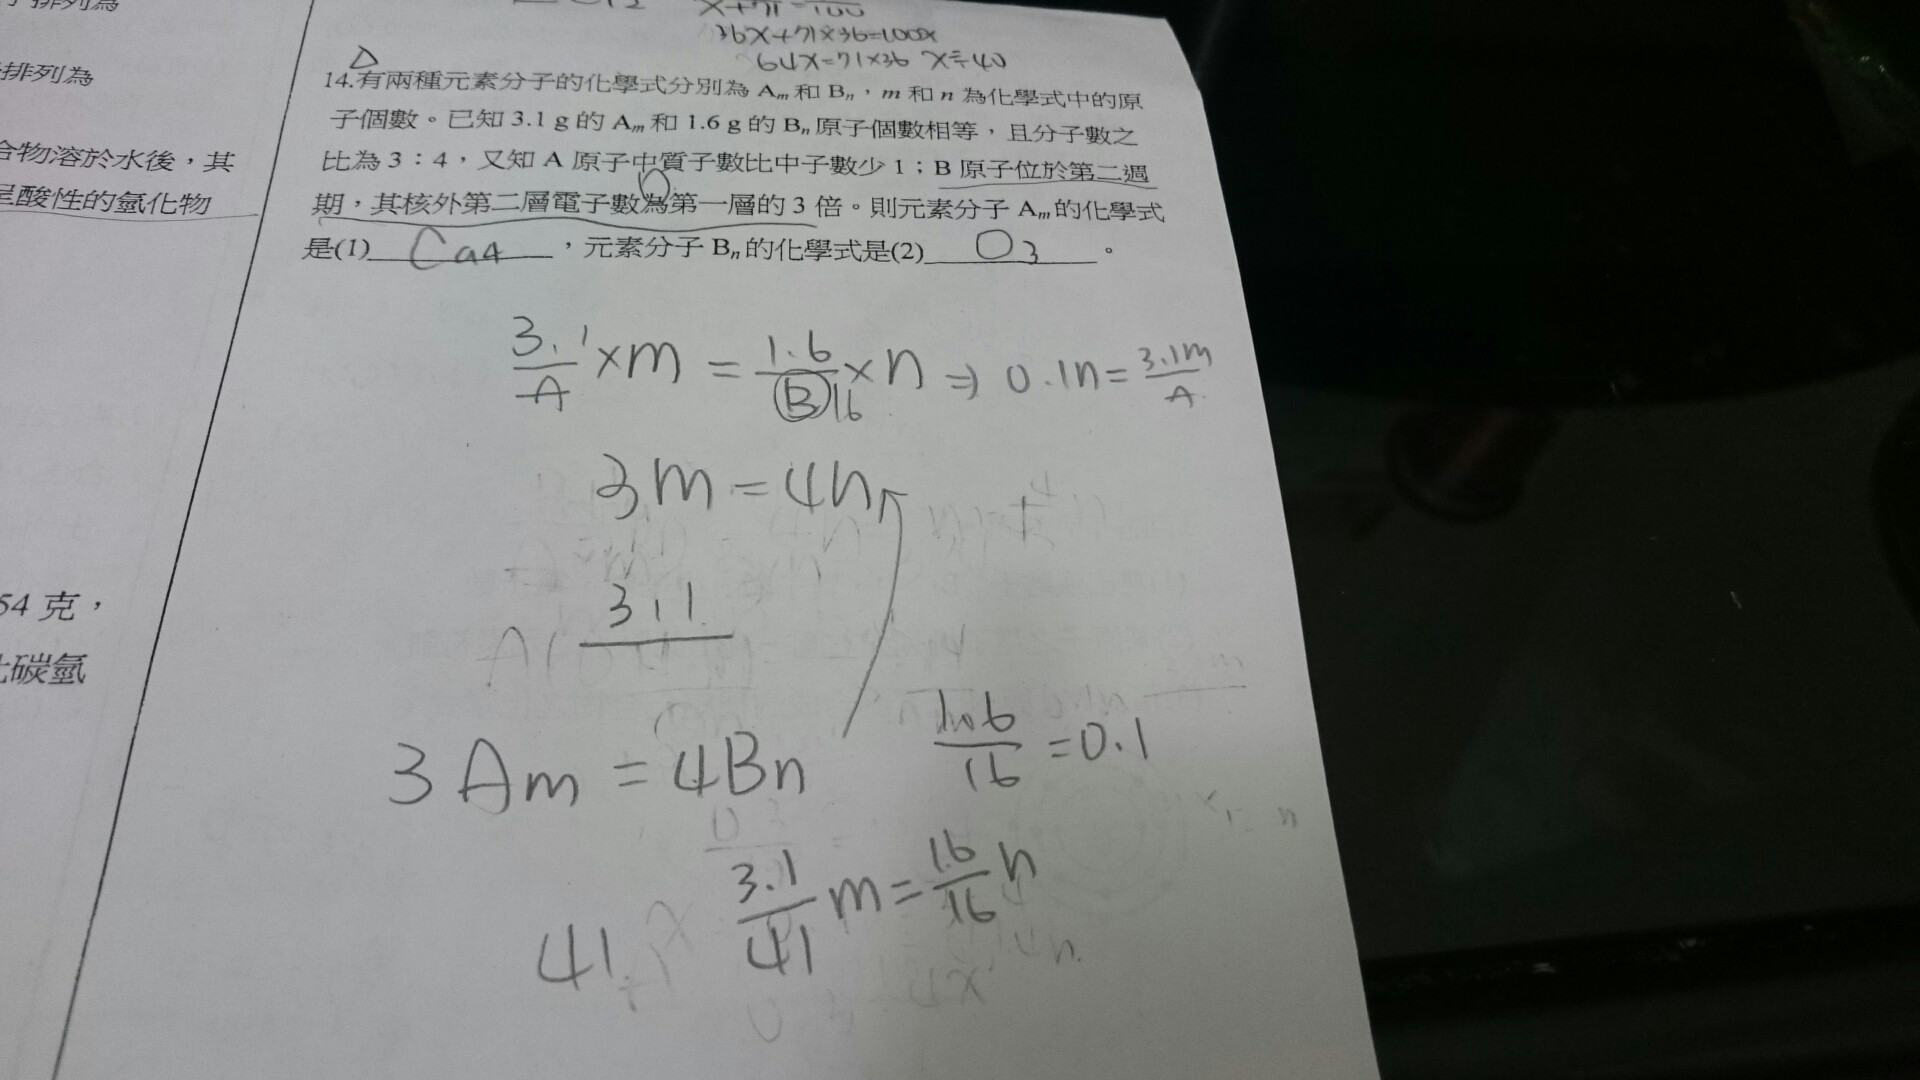 排列為
合物溶於水後，其
呈酸性的氫化物
54 克，
碳氫
36x+71×36=100x
64x=71×36 x≒40
14.有兩種元素分子的化學式分別為 Am 和 Bn，m 和 n 為化學式中的原
子個數。已知 3.1 g 的 Am 和 1.6 g 的 Bn 原子個數相等，且分子數之
比為 3：4，又知 A 原子中質子數比中子數少 1；B 原子位於第二週
期，其核外第二層電子數為第一層的 3 倍。則元素分子 Am 的化學式
是(1) Ca4 ，元素分子 Bn 的化學式是(2) O3 。
3.1/A ×m = 1.6/B 16 ×n ⇒ 0.1n = 3.1m/A
3m = 4n
3.1
3Am = 4Bn
1.6/16 = 0.1
41 3.1/41 m = 1.6/16 n